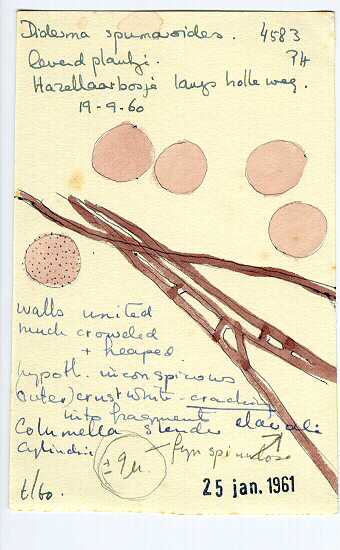 Diderma spumarioides. 4583
Levend plantje. PH
Hazellaarbosje langs holle weg.
19-9-60
walls united
much crowded
+ heaped
hypoth. inconspicuous
(outer) crust white - cracking
into fragments
Columella slender clavate
cylindric
± 9 µ. fijn spinulose
t/60.
25 jan. 1961